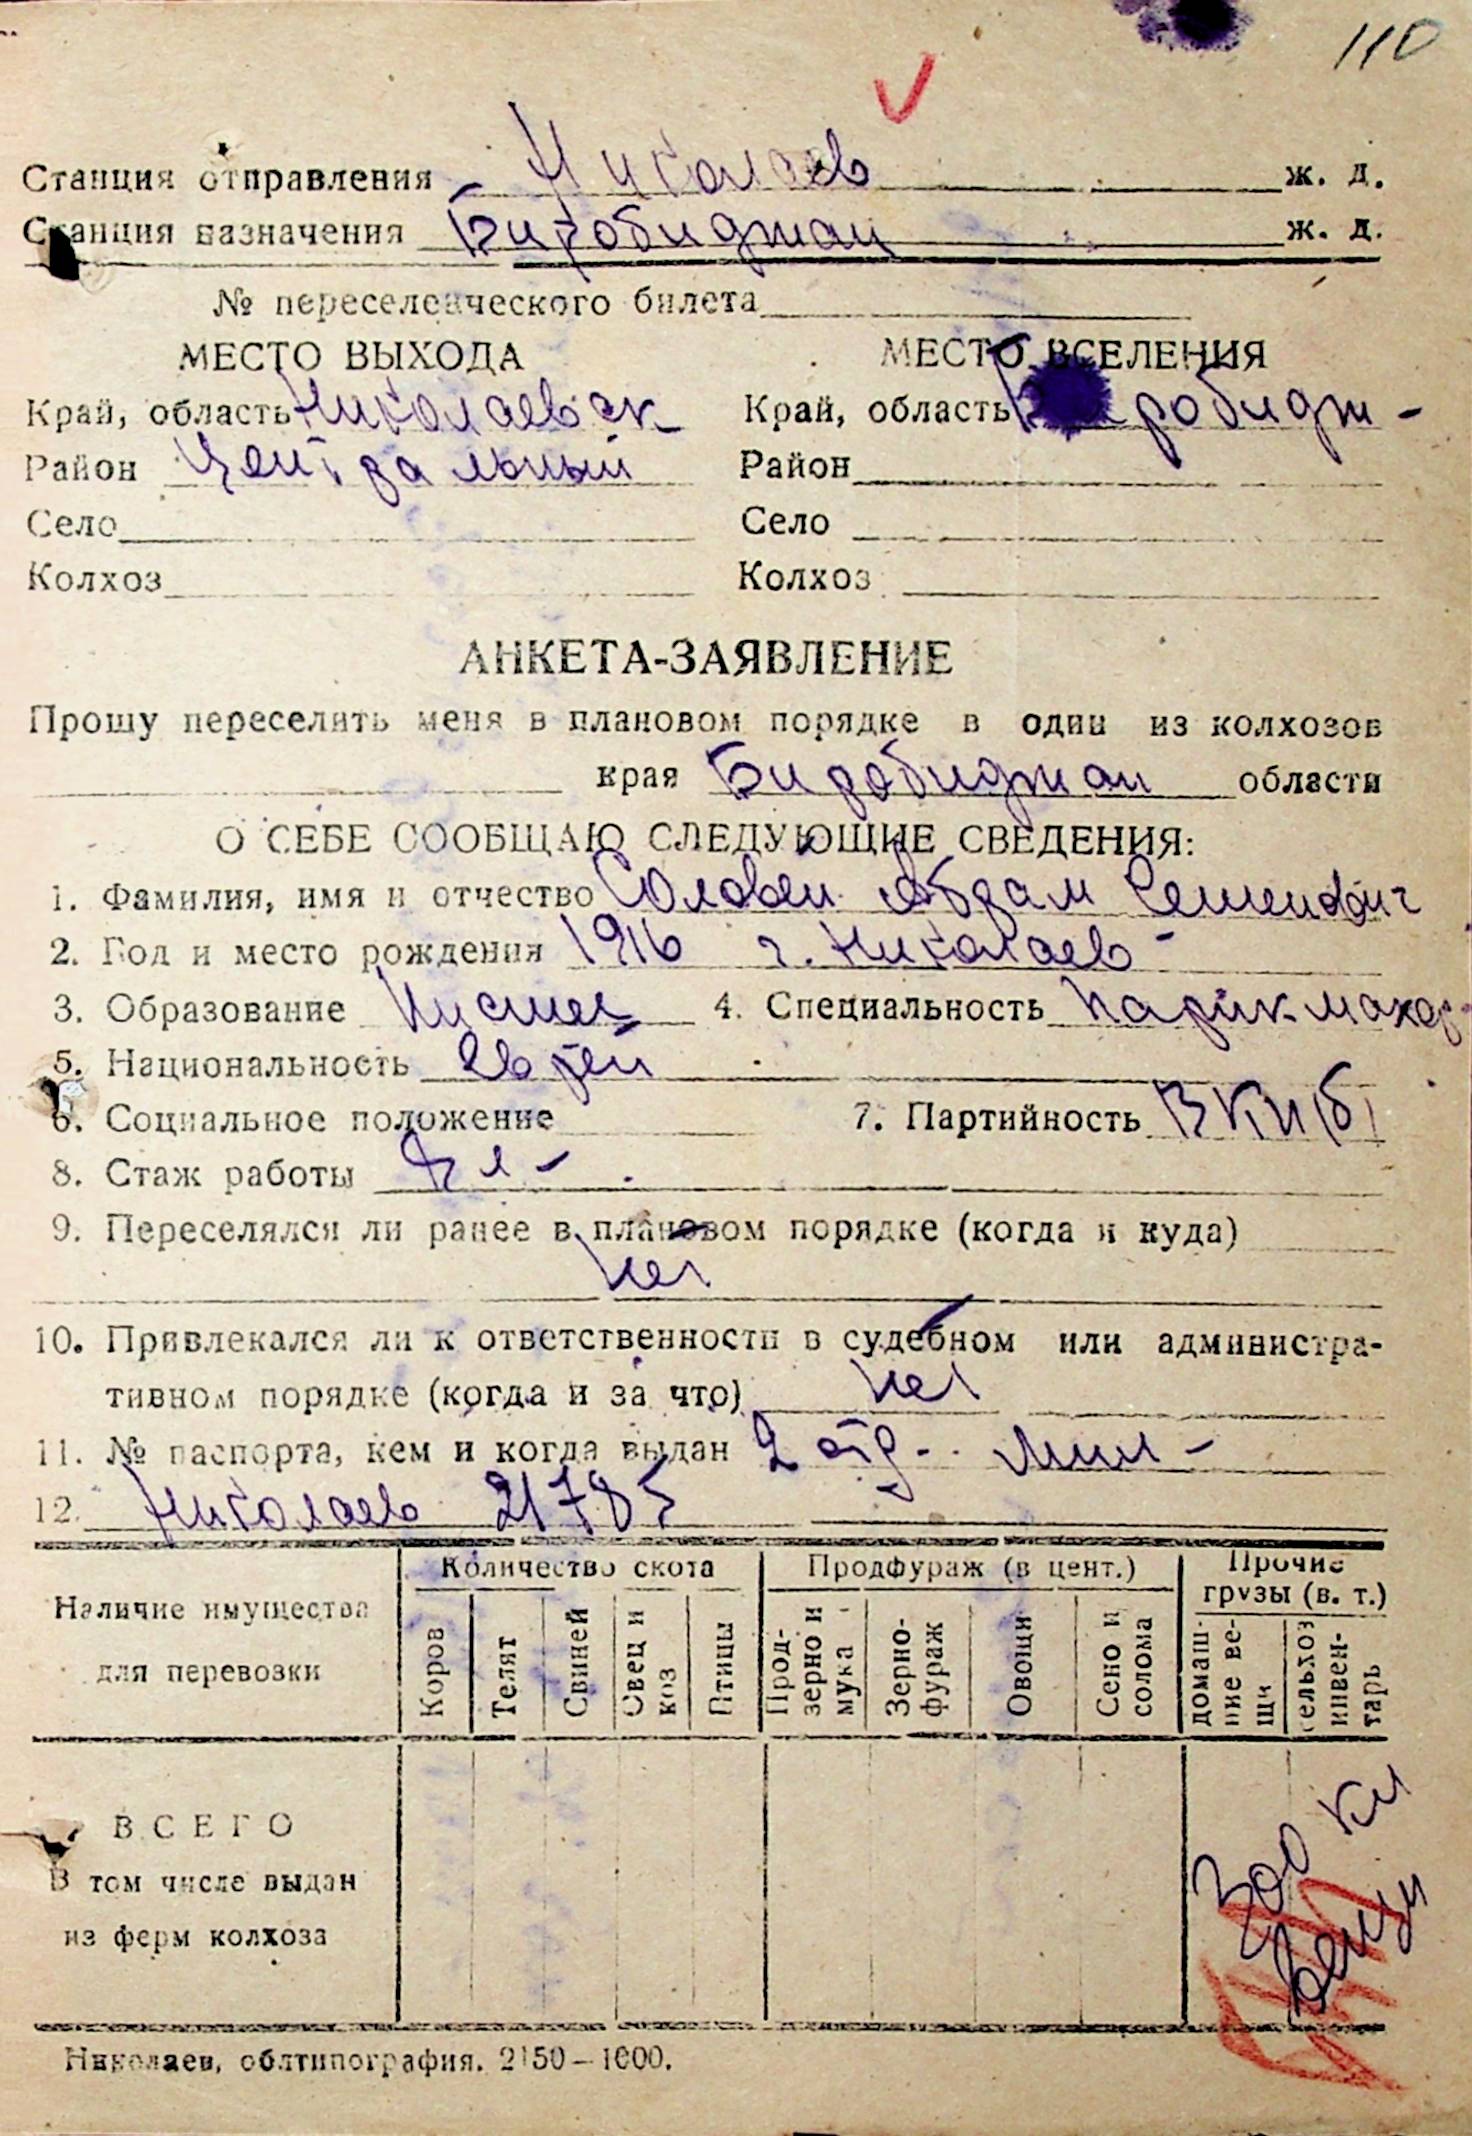 110
Станция отправления Николаев ж. д.
Станция назначения Биробиджан ж. д.
№ переселенческого билета
МЕСТО ВЫХОДА МЕСТО ВСЕЛЕНИЯ
Край, область Николаевск Край, область Биробидж-
Район Центральный Район
Село Село
Колхоз Колхоз
АНКЕТА-ЗАЯВЛЕНИЕ
Прошу переселить меня в плановом порядке в один из колхозов
края Биробиджан области
О СЕБЕ СООБЩАЮ СЛЕДУЮЩИЕ СВЕДЕНИЯ:
1. Фамилия, имя и отчество Соловей Абрам Семенович
2. Год и место рождения 1916 г. Николаев
3. Образование Нисшее 4. Специальность Парикмахер
5. Национальность Еврей
6. Социальное положение 7. Партийность ВКП(б)
8. Стаж работы л -
9. Переселялся ли ранее в плановом порядке (когда и куда)
Нет
10. Привлекался ли к ответственности в судебном или администра-
тивном порядке (когда и за что) Нет
11. № паспорта, кем и когда выдан 2 отд. мил -
12. Николаев 21785
Количество скота Продфураж (в цент.) Прочие грузы (в. т.)
Наличие имущества для перевозки Коров Телят Свиней Овец и коз Птицы Прод-зерно и мука Зерно-фураж Овощи Сено и солома домаш-ние ве-щи сельхоз инвен-тарь
ВСЕГО
В том числе выдан
из ферм колхоза
300 кл
вещи
Николаев, облтипография. 2150—1000.